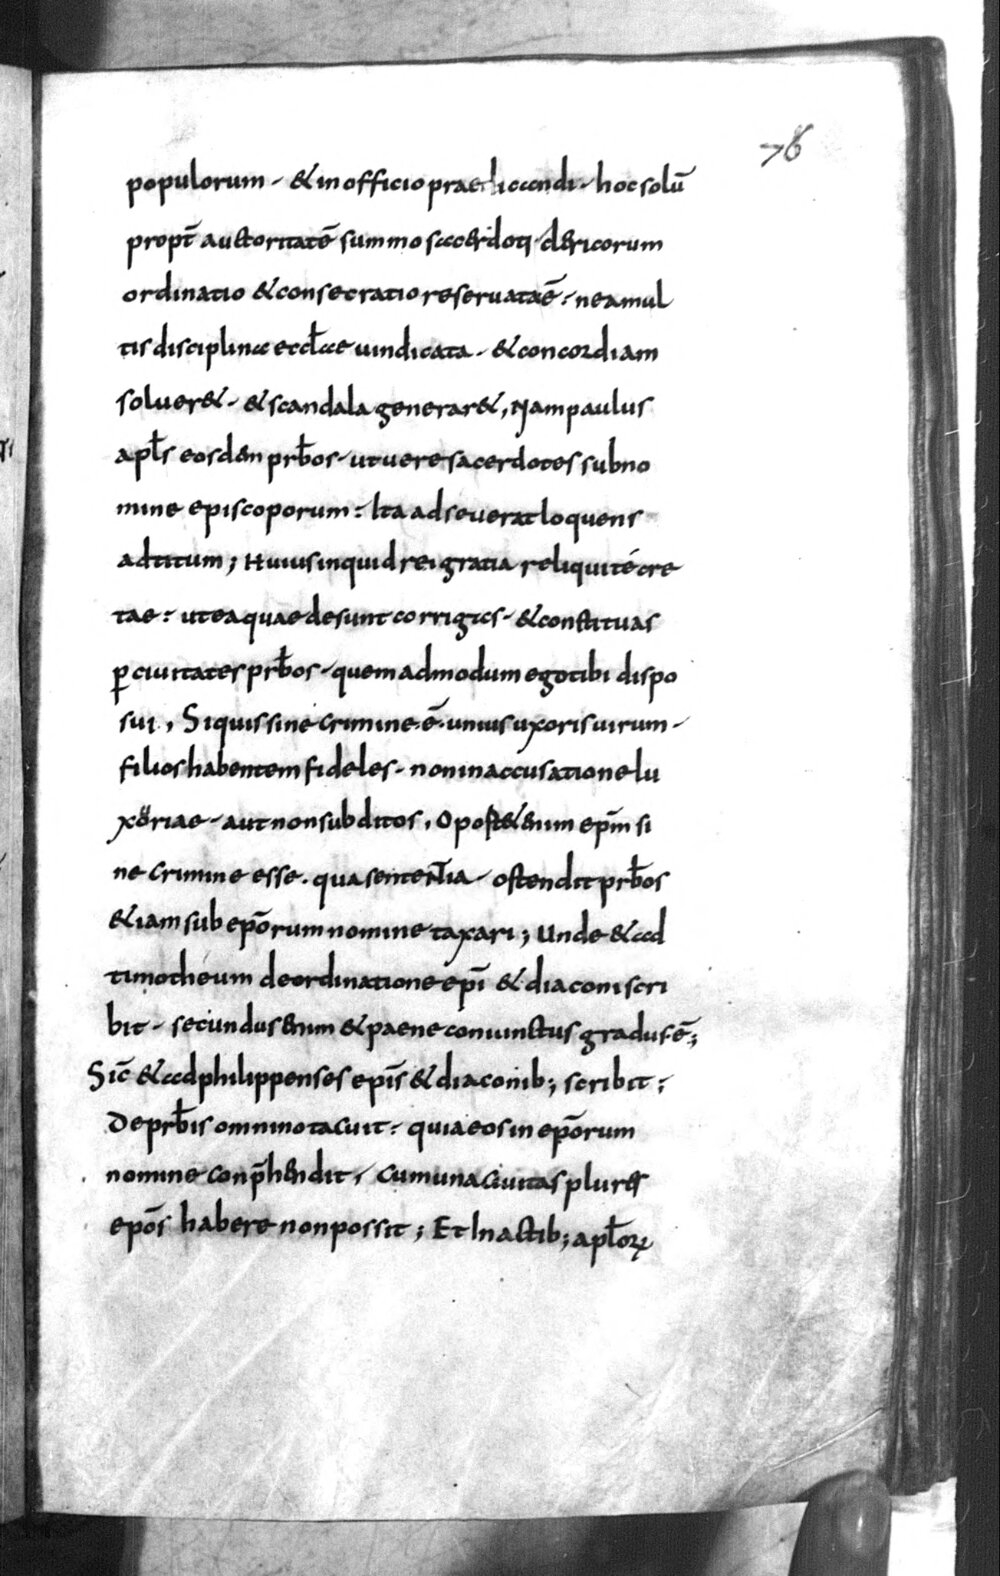 76
populorum · & in officio praedicandi · hoc solū
propt̄ auctoritatē summo sacerdoti clericorum
ordinatio & consecratio reseruata ē : ne a mul
tis disciplina eccl̄ae uindicata · & concordiam
soluer& · & scandala generar&, Nam paulus
apl̄s eosdem prb̄os · ut uere sacerdotes sub no
mine episcoporum : Ita adseuerat loquens
ad titum ; Huius inquid rei gratia reliqui té cre
tae : ut ea quae desunt corrigas · & constituas
ꝑ ciuitates prb̄os · quem admodum ego tibi dispo
sui, Si quis sine crimine · ē · unius uxoris uirum ·
filios habentem fideles · non in accusatione lu
xoriae · aut non subditos, Oport& enim ep̄m si
ne crimine esse . qua sententia · ostendit prb̄os
&iam sub ep̄orum nomine taxari ; Unde & ad
timotheum de ordinatione ep̄i & diaconi scri
bit · secundus enim & paene coniunctus gradus ē ;
Sic̄ & ad philippenses ep̄is & diaconib; scribit ;
De prb̄is omnino tacuit : quia eos in ep̄orum
nomine conp̄hendit, Cum una ciuitas plures
ep̄os habere non possit ; Et In actib; apl̄oꝝ